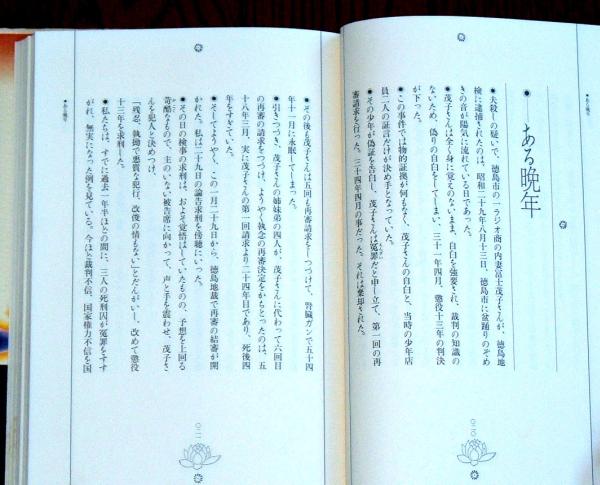 ある晩年
●夫殺しの疑いで、徳島市の一ラジオ商の内妻富士茂子さんが、徳島地
検に逮捕されたのは、昭和二十九年八月十三日、徳島市に盆踊りのぞめ
きの音が陽気に流れている日であった。
●茂子さんは全く身に覚えのないまま、自白を強要され、裁判の知識の
ないため、偽りの自白をしてしまい、三十一年四月、懲役十三年の判決
が下った。
●この事件では物的証拠が何もなく、茂子さんの自白と、当時の少年店
員二人の証言だけが決め手となっていた。
●その少年が偽証を告白し、茂子さんは冤罪だと申し立て、第一回の再
審請求を行った。三十四年四月の事だった。それは棄却された。
〇二〇
●ある晩年
●その後も茂子さんは五回も再審請求をしつづけて、腎臓ガンで五十四
年十一月に永眠してしまった。
●引きつづき、茂子さんの姉妹弟の四人が、茂子さんに代わって六回目
の再審の請求をつづけ、ようやく執念の再審決定をかちとったのは、五
十八年三月、実に茂子さんの第一回請求より二十四年目であり、死後四
年をすぎていた。
●そしてようやく、この一月二十九日から、徳島地裁で再審の結審が開
かれた。私は二十九日の論告求刑を傍聴にいった。
●その日の検事の求刑は、およそ覚悟はしていたものの、予想を上回る
苛酷なもので、主のいない被告席に向かって、声と手を震わせ、茂子さ
んを犯人と決めつけ、
「残忍、執拗で悪質な犯行、改悛の情もない」とだんがいし、改めて懲役
十三年を求刑した。
●私たちは、すでに過去一年半ほどの間に、三人の死刑囚が冤罪をすす
がれ、無実になった例を見ている。今ほど裁判不信、国家権力不信を国
〇二一